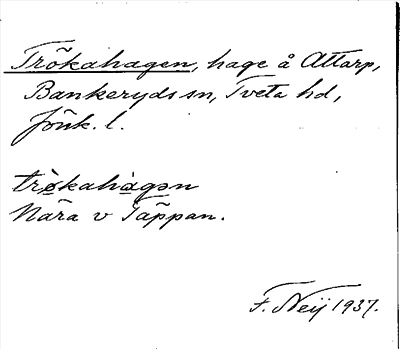 Trökahagen, hage å Attarp,
Bankeryds sn, Tveta hd,
Jönk. l.
trö̀kahàgən
Nära v Täppan.
F. Neij 1937.